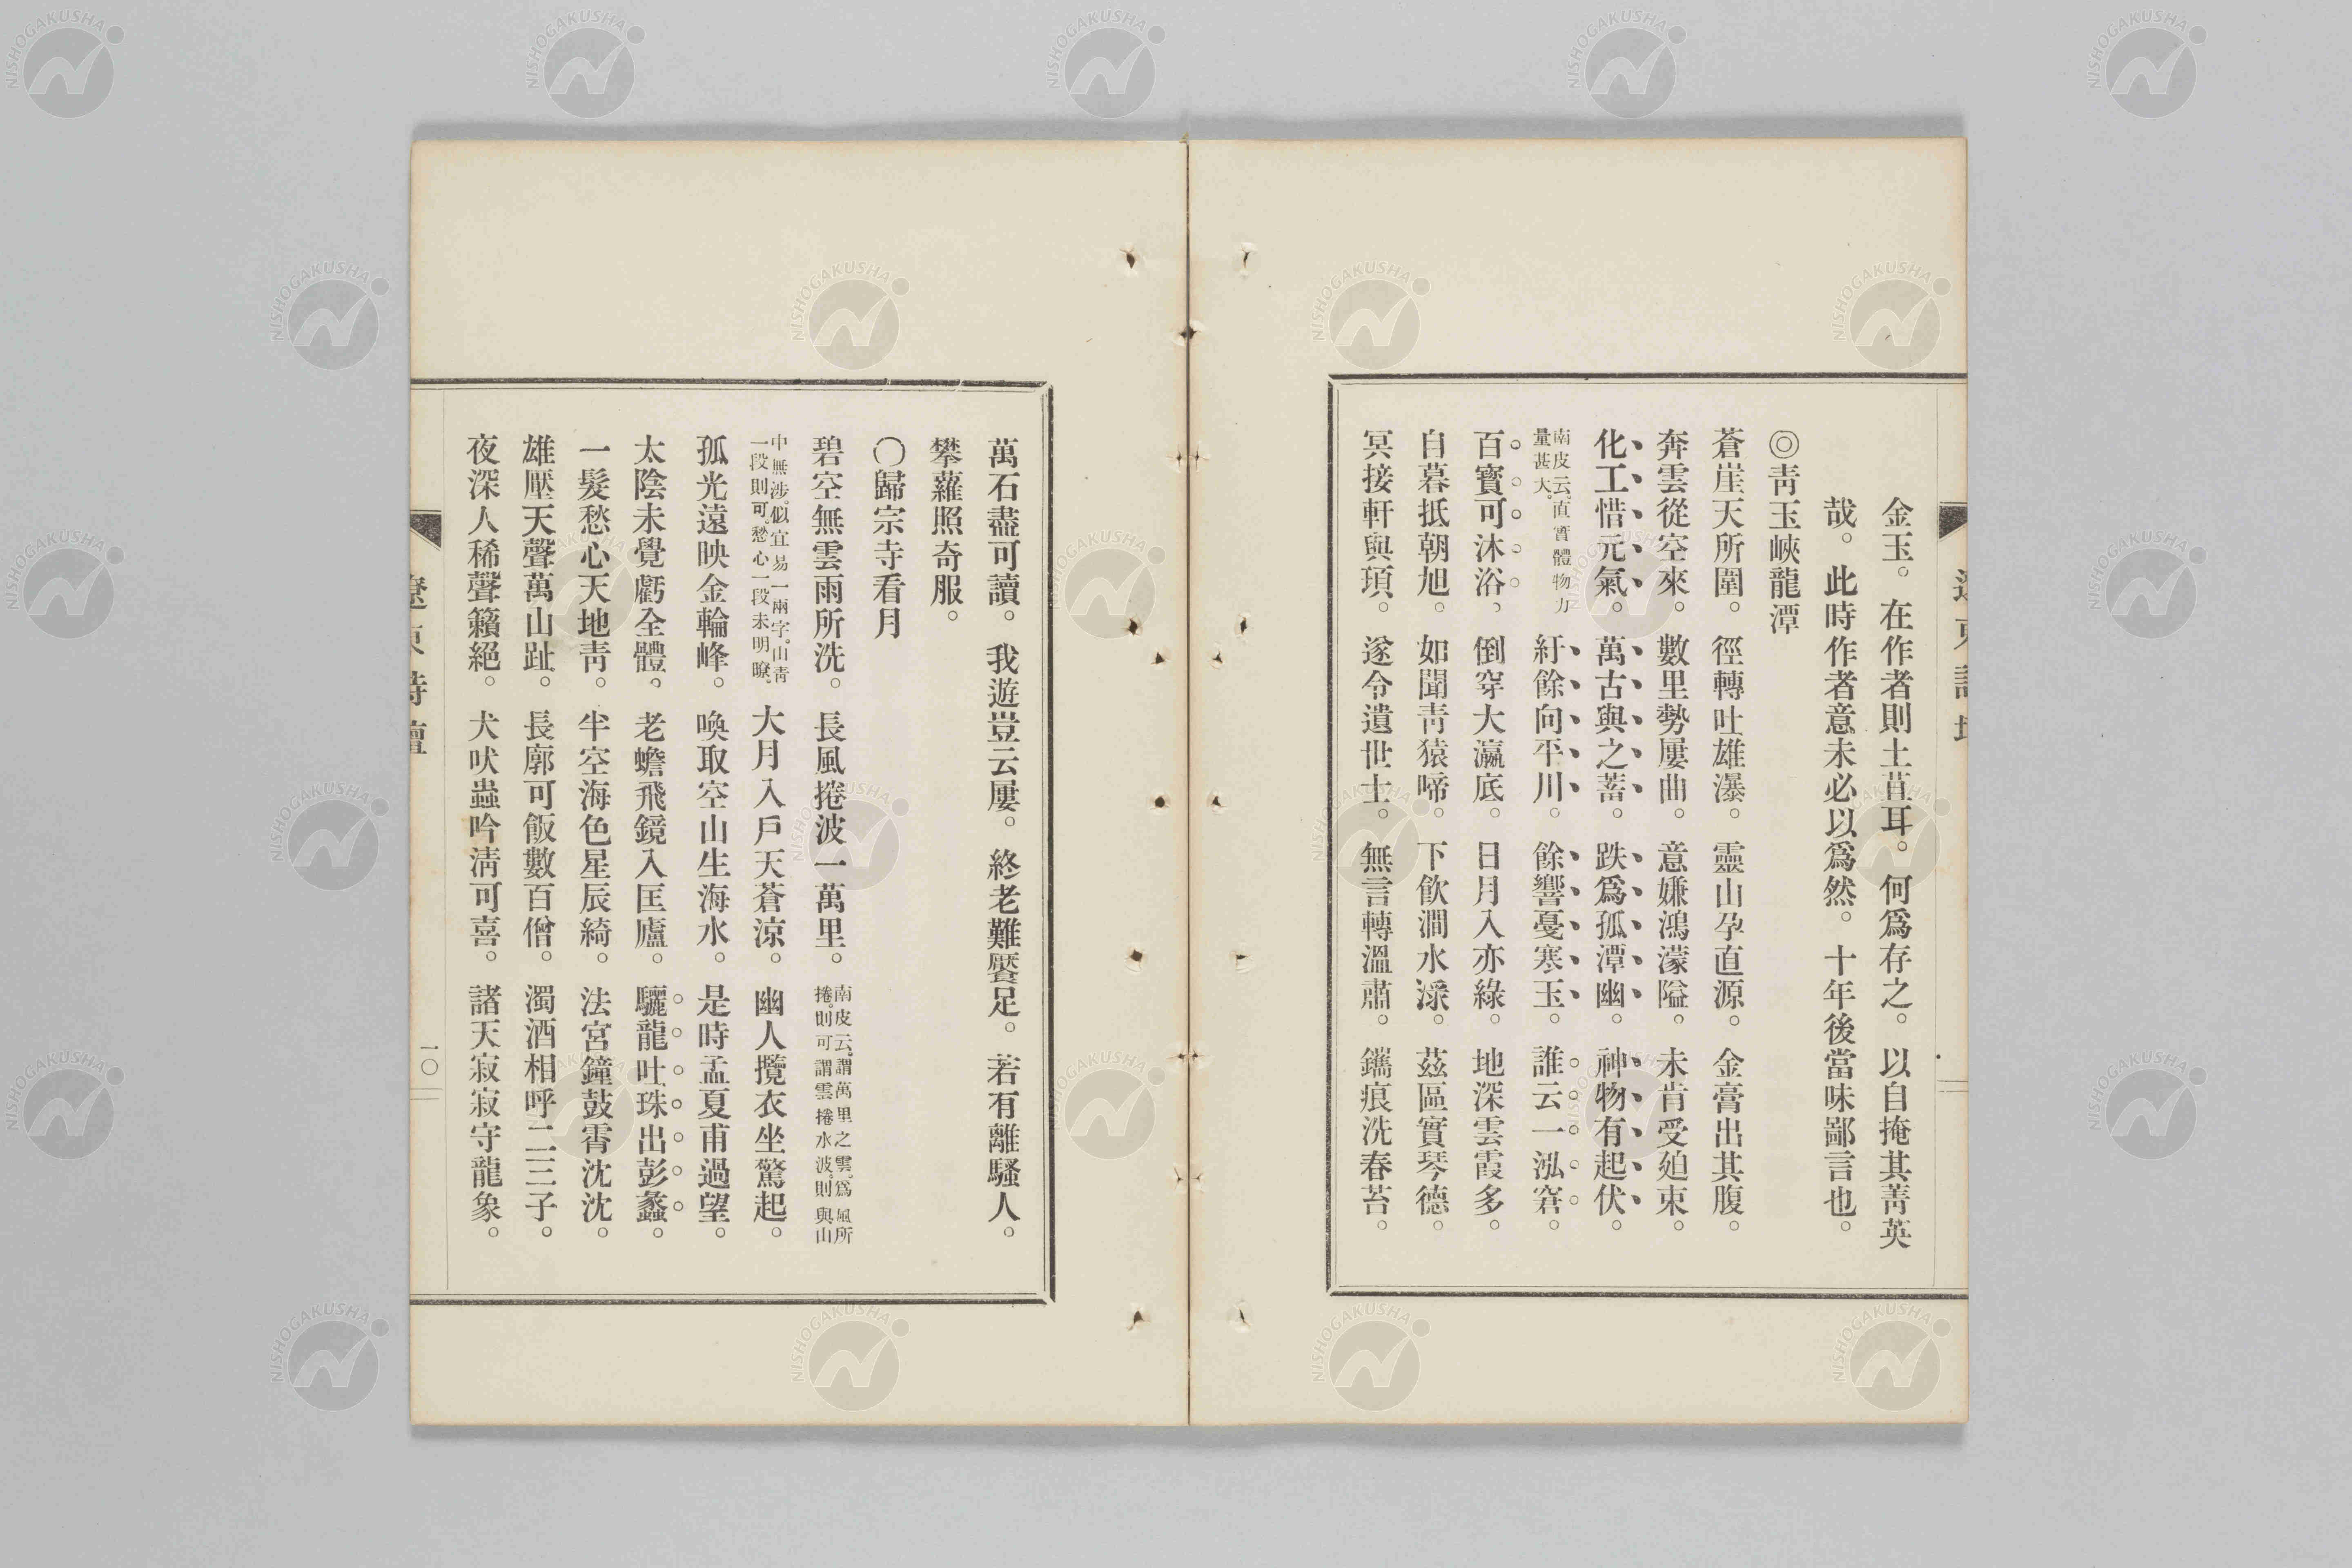 金玉。在作者則土苴耳。何爲存之。以自掩其菁英
哉。此時作者意未必以爲然。十年後當味鄙言也。
◎靑玉峽龍潭
蒼崖天所圍。徑轉吐雄瀑。靈山孕直源。金膏出其腹。
奔雲從空來。數里勢屢曲。意嫌鴻濛隘。未肯受廹束。
化工惜元氣。萬古與之蓄。跌爲孤潭幽。神物有起伏。
南皮云。直實體物力
量甚大。
紆餘向平川。餘響戛寒玉。誰云一泓窘。
百寶可沐浴、倒穿大瀛底。日月入亦綠。地深雲霞多。
自暮抵朝旭。如聞靑猿啼。下飮澗水渌。茲區實琴德。
冥接軒與頊。遂令遺世士。無言轉溫肅。鑴痕洗春苔。
萬石盡可讀。我遊豈云屢。終老難饜足。若有離騷人。
攀蘿照奇服。
〇歸宗寺看月
碧空無雲雨所洗。長風捲波一萬里。
南皮云。謂萬里之雲。爲風所
捲。則可謂雲捲水波。則與山
中無涉。似宜易一兩字。山靑
一段則可。愁心一段未明瞭。
大月入戶天蒼涼。幽人攬衣坐驚起。
孤光遠映金輪峰。喚取空山生海水。是時孟夏甫過望。
太陰未覺虧全體。老蟾飛鏡入匡廬。驪龍吐珠出彭蠡。
一髮愁心天地靑。半空海色星辰綺。法宮鐘鼓霄沈沈。
雄壓天聲萬山趾。長廓可飯數百僧。濁酒相呼二三子。
夜深人稀聲籟絕。犬吠蟲吟淸可喜。諸天寂寂守龍象。
遼東詩壇
一〇
NISHOGAKUSHA